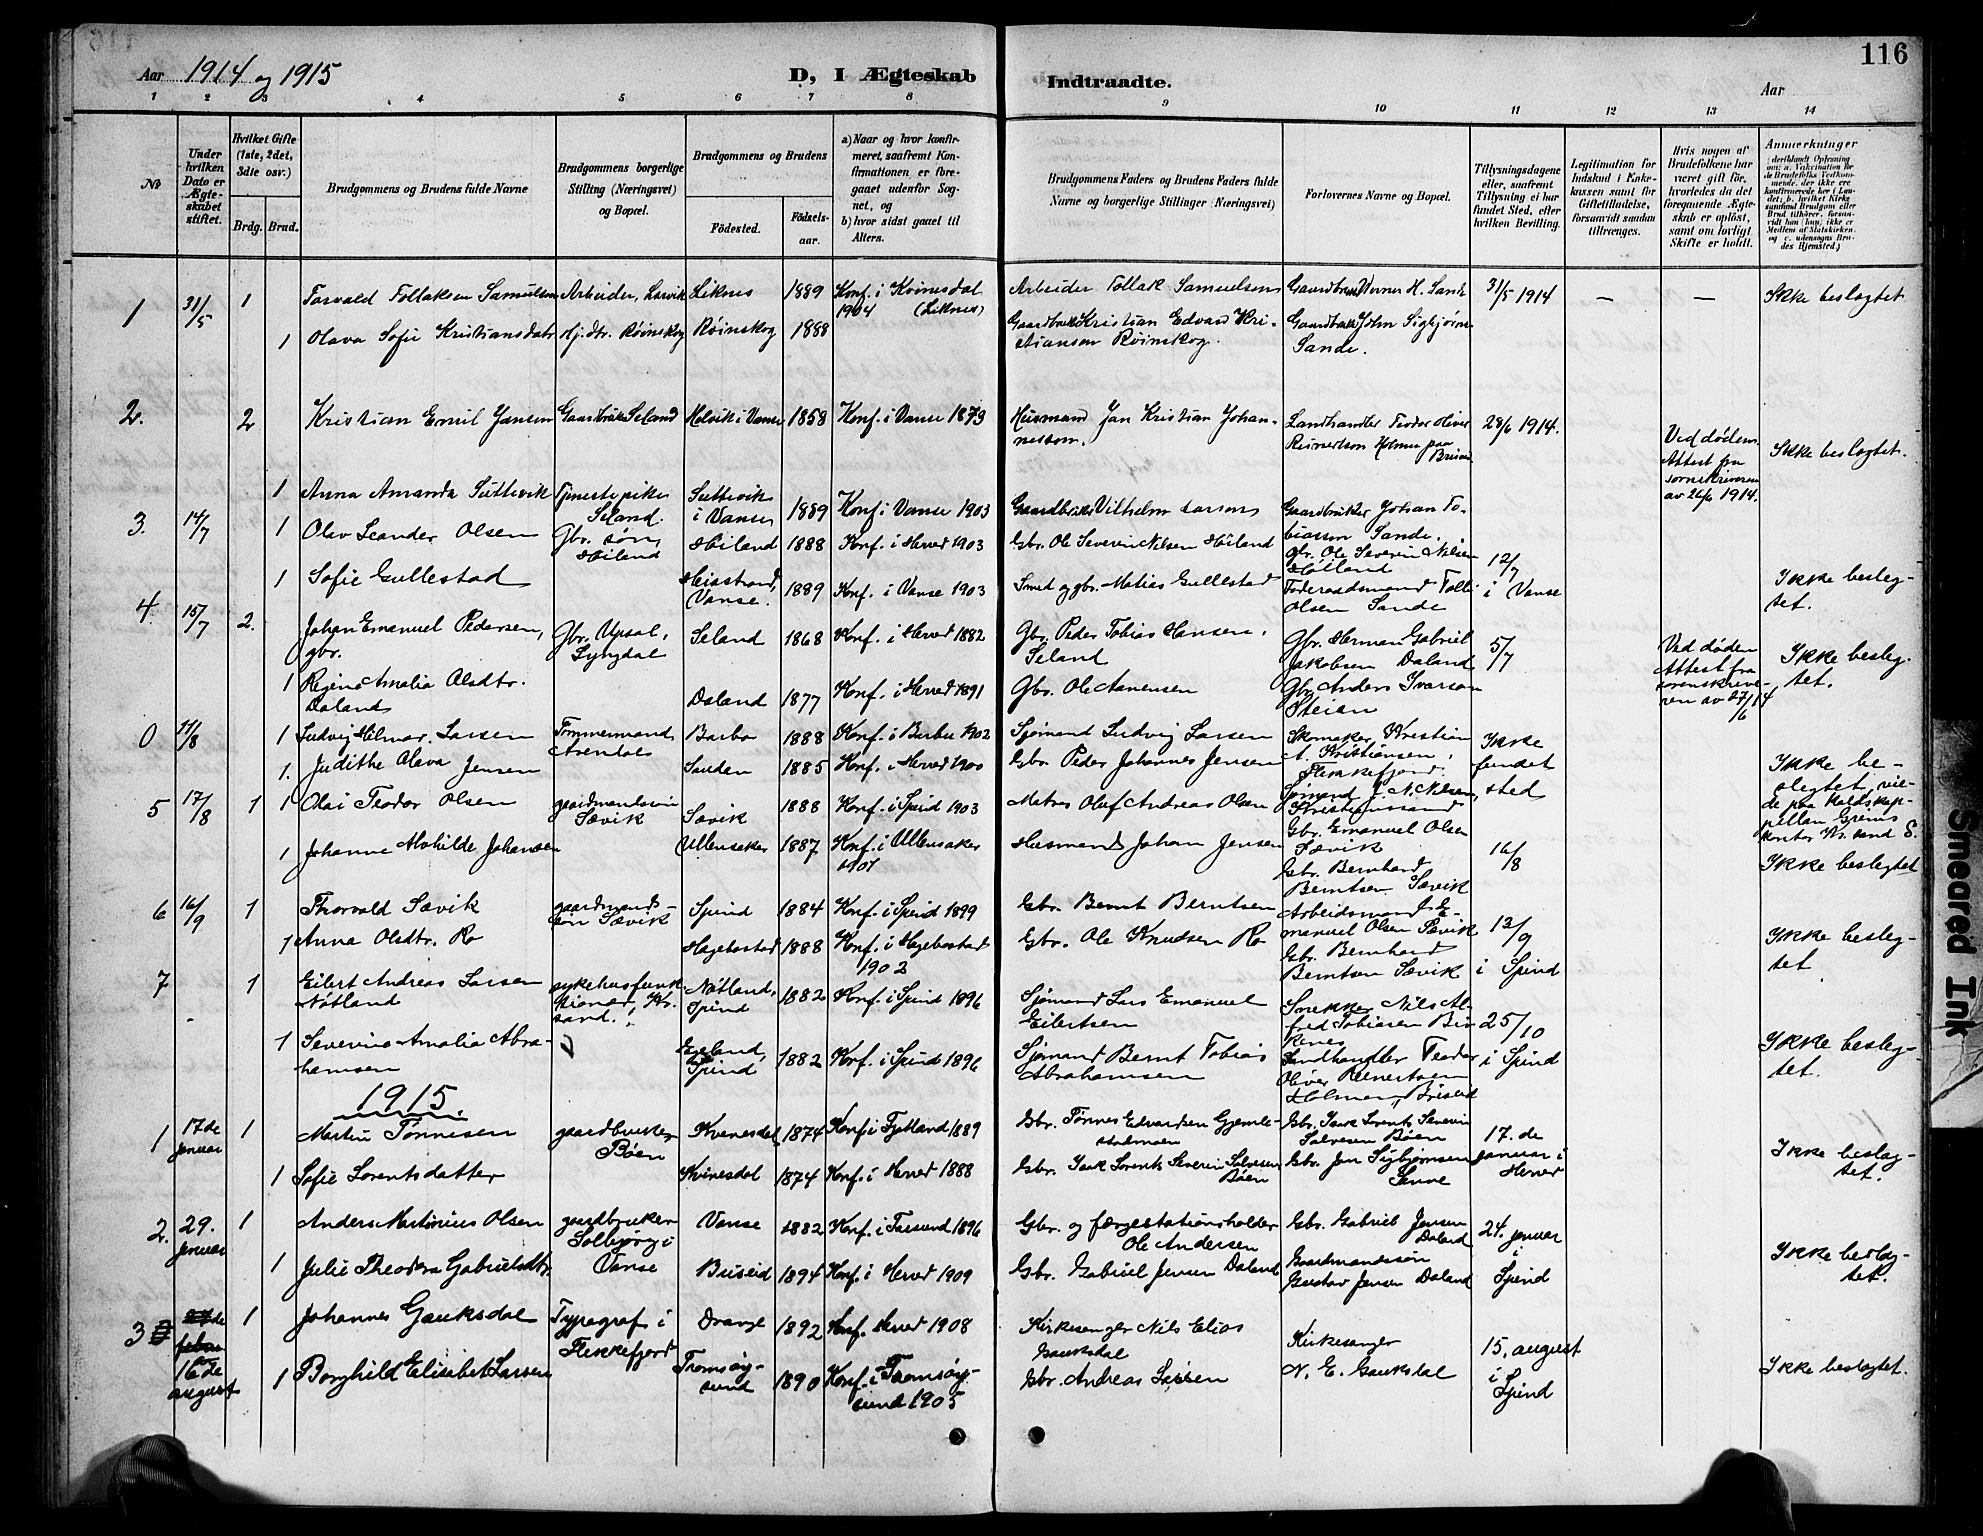 116
Aar 1914 og 1915
D, I Ægteskab
Indtraadte.
Aar
1 2 3 4 5 6 7 8 9 10 11 12 13 14
№
Under hvilken Dato er Ægteskabet stiftet.
Hvilket Gifte (1ste, 2det, 3die osv.)
Brdg. Brud.
Brudgommens og Brudens fulde Navne
Brudgommens borgerlige Stilling (Næringsvei) og Bopæl.
Brudgommens og Brudens
Födested.
Födselsaar.
a) Naar og hvor konfirmeret, saafremt Konfirmationen er foregaaet udenfor Sognet, og
b) hvor sidst gaaet til Alters.
Brudgommens Faders og Brudens Faders fulde Navne og borgerlige Stillinger (Næringsvei)
Forlovernes Navne og Bopæl.
Tillysningsdagene eller, saafremt Tillysning ei har fundet Sted, efter hvilken Bevilling.
Legitimation for Indskud i Enkekassen samt for Giftetilladelse, forsaavidt saadan tiltrænges.
Hvis nogen af Brudefolkene har været gift för, hvorledes da det foregaaende Ægteskab er oplöst, samt om lovligt Skifte er holdt.
Anmærkninger
1 31/5 1 Torvald Tollaksen Samuelsen Arbeider, Larvik Liknes 1889 Konf. i Kvinesdal 1904 (Liknes) Arbeider Tollak Samuelsen Gaardbr. Werner H. Sande 31/5 1914 — — Ikke beslægtet
1 Olava Sofie Kristiansdatr. Hj.dtr. Røinskog Røinskog 1888 Gaardbruk. Kristian Edvard Kristiansen Røinskog. Gaardbruk. John Sigbjørns. Sande.
2. 2 Kristian Emil Jansen Gaardbruk. Seland Helvik i Vanse 1858 Konf. i Vanse 1873 Husmand Jan Kristian Johannessen. Landhandler Teodor Oliver Reinertsen Holmen paa Briseid 28/6 1914. Ved døden. Attest fra sorenskriveren av 26/6 1914. Ikke beslægtet.
1 Anna Amanda Suttevik Tjenestepike Seland. Suttevik i Vanse 1889 Konf. i Vanse 1903 Gaardbruk. Vilhelm Larsen Gaardbruker Johan Tobiassen Sande.
3. 14/7 1 Olav Leander Olsen Gbr. søn, Høiland Høiland 1888 Konf. i Herred 1903 Gbr. Ole Severin Nilsen Høiland Gbr. Ole Severin Nilsen Høiland 12/7 i Vanse Ikke beslegtet.
1 Sofie Gullestad Vanse. 1889 Konf. i Vanse 1903 Smed og gbr. Matias Gullestad Føderaadsmand Olsen Sande
4. 15/7 2. Johan Emanuel Pedersen, gbr. Gbr. Upsal, Lyngdal Seland 1868 Konf. i Herred 1882 Gbr. Peder Tobias Hansen, Seland Gbr. Herman Gabriel Jakobsen Daland 5/7 Ved døden Attest fra sorenskriveren av 27/6 14 Ikke beslegtet.
1 Regine Amalia Olsdtr. Daland Daland 1877 Konf. i Herred 1891 Gbr. Ole Aanensen Gbr. Anders Ivarsen Steien
0 11/8 1 Ludvig Hilmar Larsen Tømmermand, Arendal Barbo 1888 Konf. i Barbu 1902 Sjømand Ludvig Larsen Skomaker Kristian A. Kristiansen, Flekkefjord. Ikke fundet sted Ikke beslegtet, viede paa
1. Judithe Olava Jensen Sanden 1885 Konf. i Herred 1900 Gbr. Peder Johannes Jensen Sjømand N. Nilsen, Kristianssand
5 17/8 1 1 Olai Teodor Olsen gaardmandssøn Sævik Sævik 1888 Konf. i Spind 1903 Matros Oluf Andreas Olsen Gbr. Emanuel Olsen Sævik 16/8 Ikke beslegtet
1 Johanne Mathilde Johansen Ullensaker 1887 Konf. i Ullensaker 1901 Husmand Johan Jensen Gbr. Bernhard Berntsen Sævik
6 16/9 1 Thorvald Sævik gaardmandssøn Sævik Spind 1884 Konf. i Spind 1899 Gbr. Bernt Berntsen Arbeidsmand Emanuel Olsen Sævik 13/9 i Spind Ikke beslegtet
1 Anna Olsdtr. Ro Hægebostad 1888 Konf. i Hægebostad 1902 Gbr. Ole Knudsen Ro Gbr. Bernhard Berntsen Sævik
7 1 Eilert Andreas Larsen Nøtland sykehusfunktionær, Kr.sand. Nøtland, Spind 1882 Konf. i Spind 1896 Sjømand Lars Emanuel Eilertsen Snekker Nils Alfred Tobiasen Birkenes 25/10 i Spind Ikke beslegtet.
1 Severine Amalia Abrahamsen Egeland, Spind 1882 Konf. i Spind 1896 Sjømand Bernt Tobias Abrahamsen Landhandler Teodor Oliver Reinertsen Holmen, Briseid
1915.
1 17de januar 1 Martin Tønnesen gaardbruker Bøen Kvinesdal 1874 Konf. i Fjotland 1889 Gbr. Tønnes Edvardsen Gjemlestadmoen Gbr. Isak Lorents Severin Salvesen Bøen 17.de januar i Herred Ikke beslægtet.
1 Sofie Lorentsdatter Kvinesdal 1874 Konf. i Herred 1888 Gbr. Isak Lorents Severin Salvesen Bøen Gbr. Jan Sigbjørnsen Sande
2. 29. januar 1 Anders Martinius Olsen gaardbruker Solbjørg i Vanse Vanse 1882 Konf. i Farsund 1896 Gbr. og færgestationsholder Ole Andersen Gbr. Gabriel Jensen Daland 24. januar i Spind Ikke beslægtet.
1 Julie Theodora Gabrielsdtr. Buseid 1894 Konf. i Herred 1909 Gbr. Gabriel Jensen Daland Gaardmandssøn Gustav Jensen Daland
3 16de august 1 Johannes Gauksdal Typograf i Flekkefjord Drange 1892 Konf. Herred 1908 Kirkesanger Nils Elias Gauksdal Kirkesanger N. E. Gauksdal 15. august i Spind Ikke beslægtet.
1 Borghild Elisabet Larsen Tromsøysund 1890 Konf. i Tromsøysund 1905 Gbr. Andreas Larsen
Smeared Ink